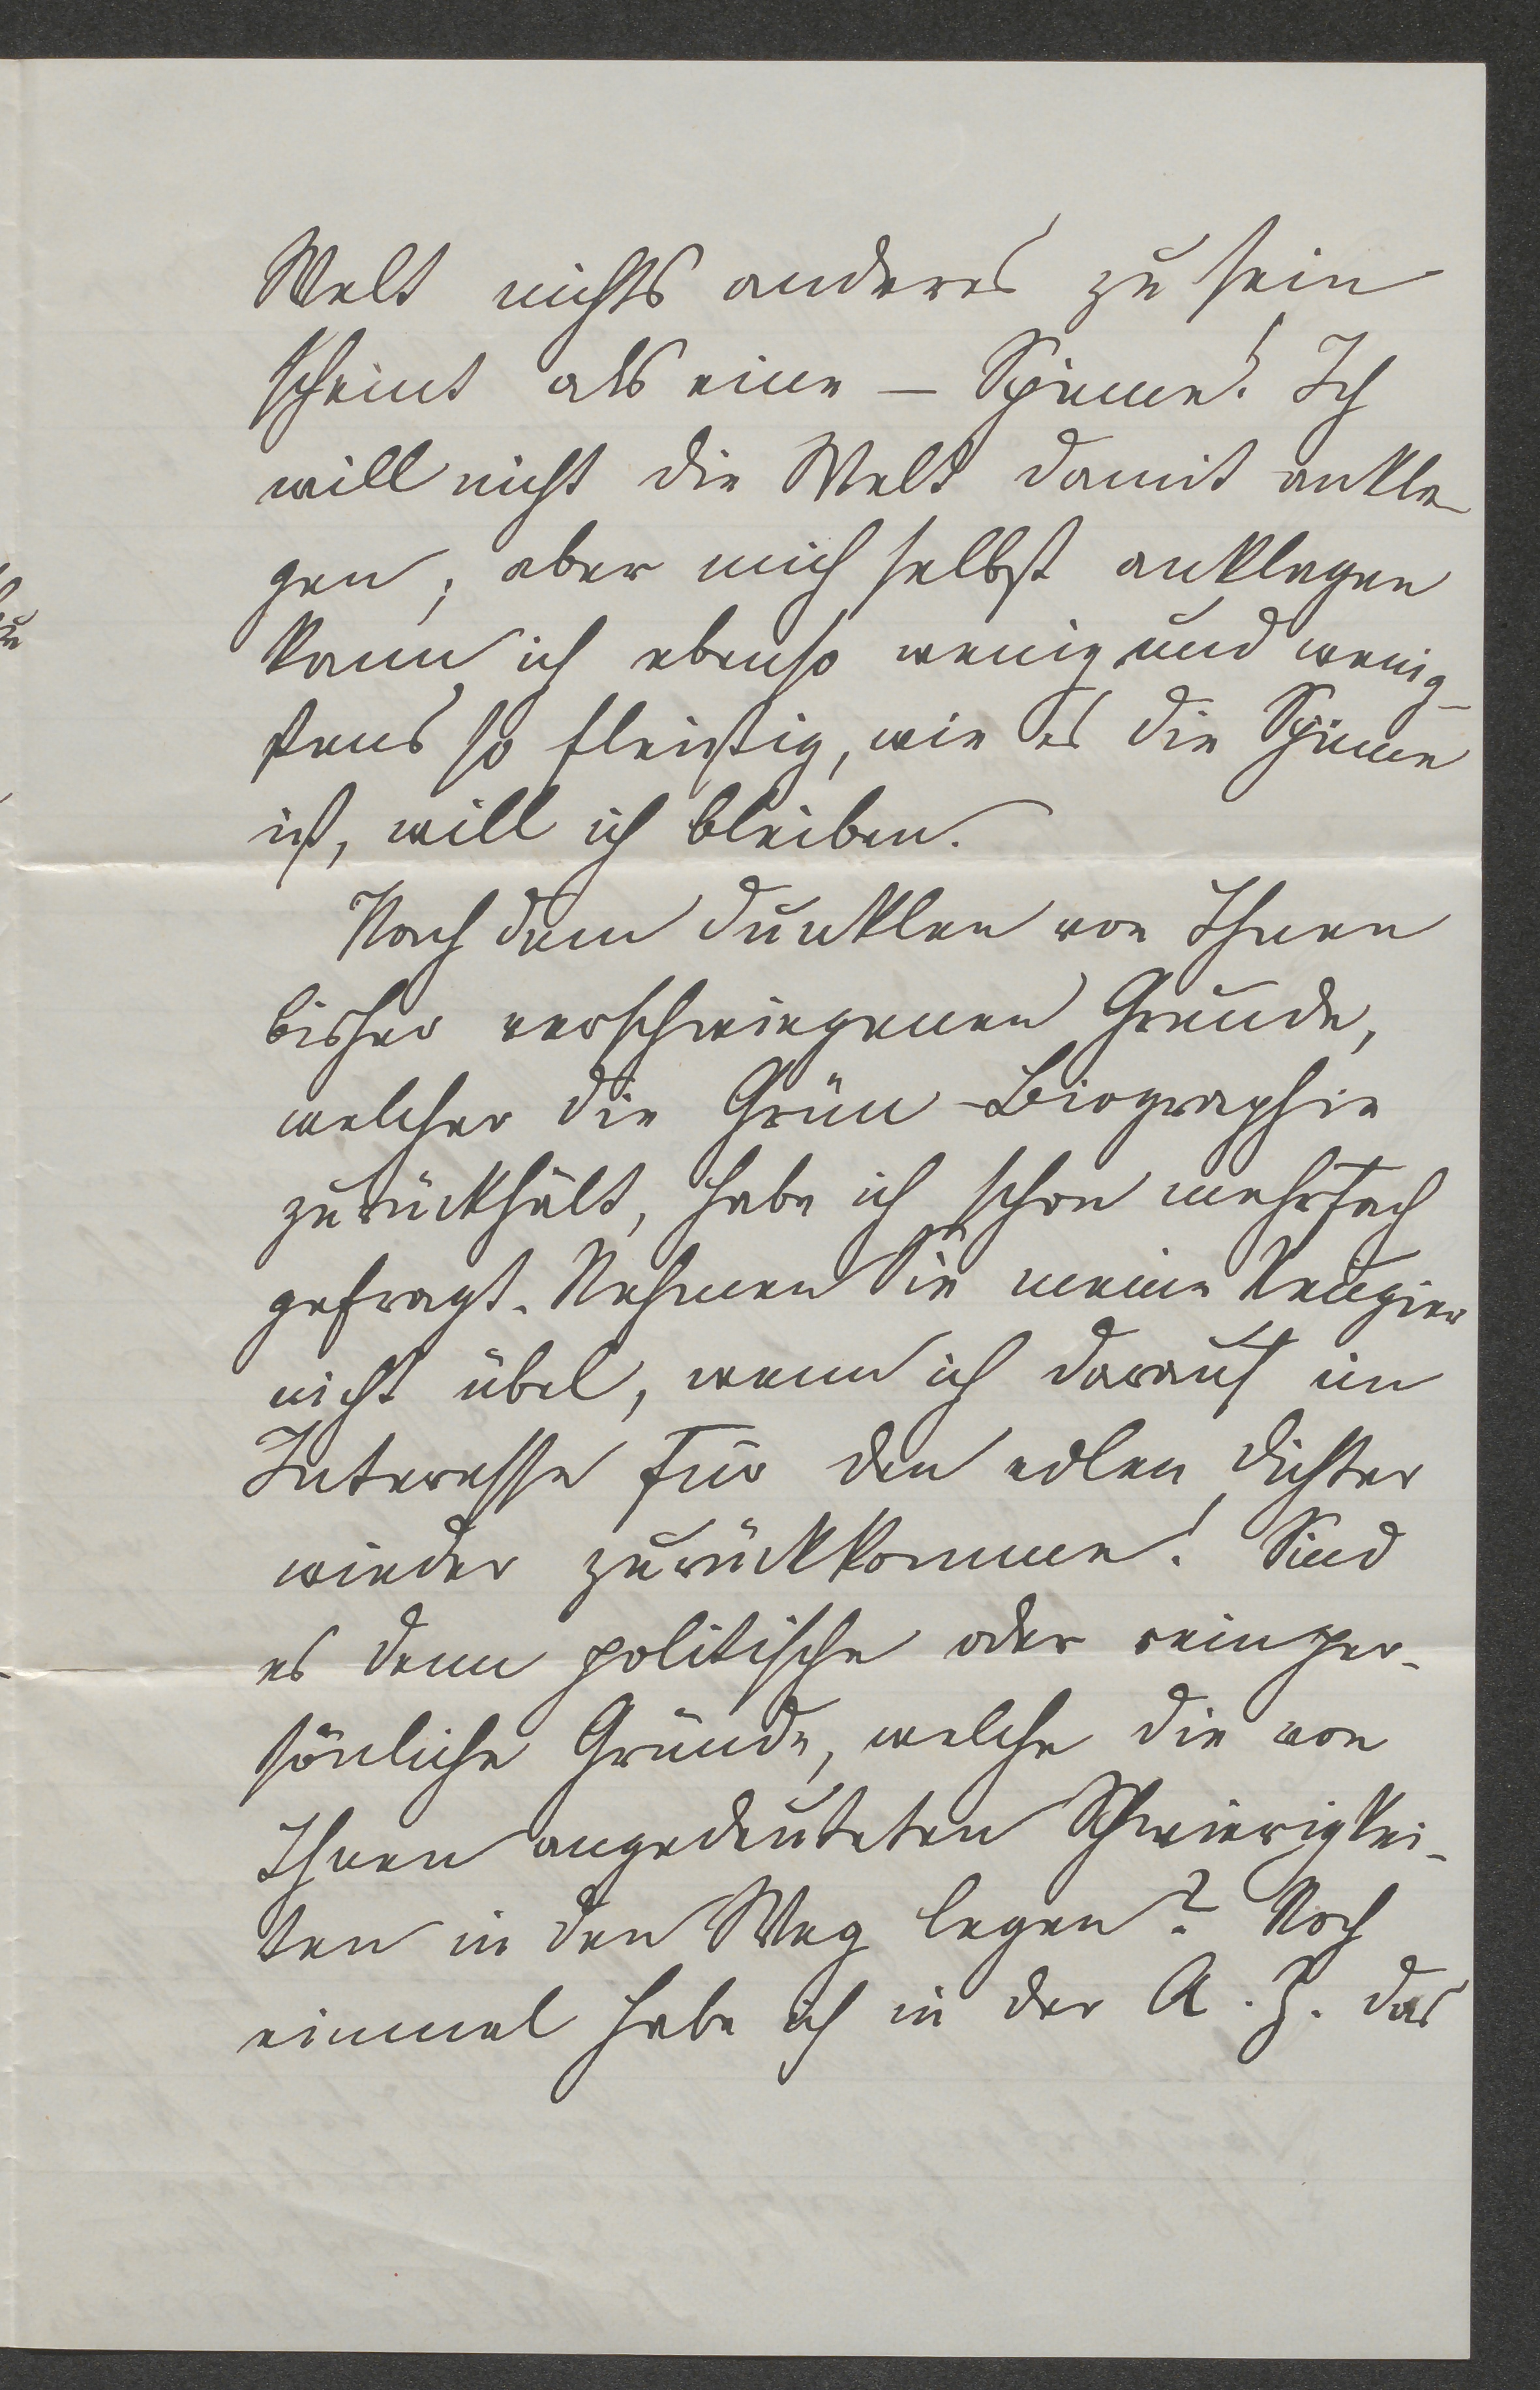 Welt nichts anderes zu sein
scheint als eine – Spinne! Ich
will nicht die Welt damit ankla-
gen; aber mich selbst anklagen
kann ich ebenso wenig und wenig-
stens so fleißig, wie es die Spinne
ist, will ich bleiben.
Nach dem dunklen von Ihnen
bisher verschwiegenen Grunde,
welcher die Grün-Biographie
zurückhält, habe ich schon mehrfach
gefragt. Nehmen Sie meine Neugier
nicht übel, wenn ich darauf im
Interesse für den edlen Dichter
wieder zurückkomme! Sind
es denn politische oder rein per-
sönliche Gründe, welche die von
Ihnen angedeuteten Schwierigkei-
ten in den Weg legen? Noch
einmal habe ich in der A. Z. das